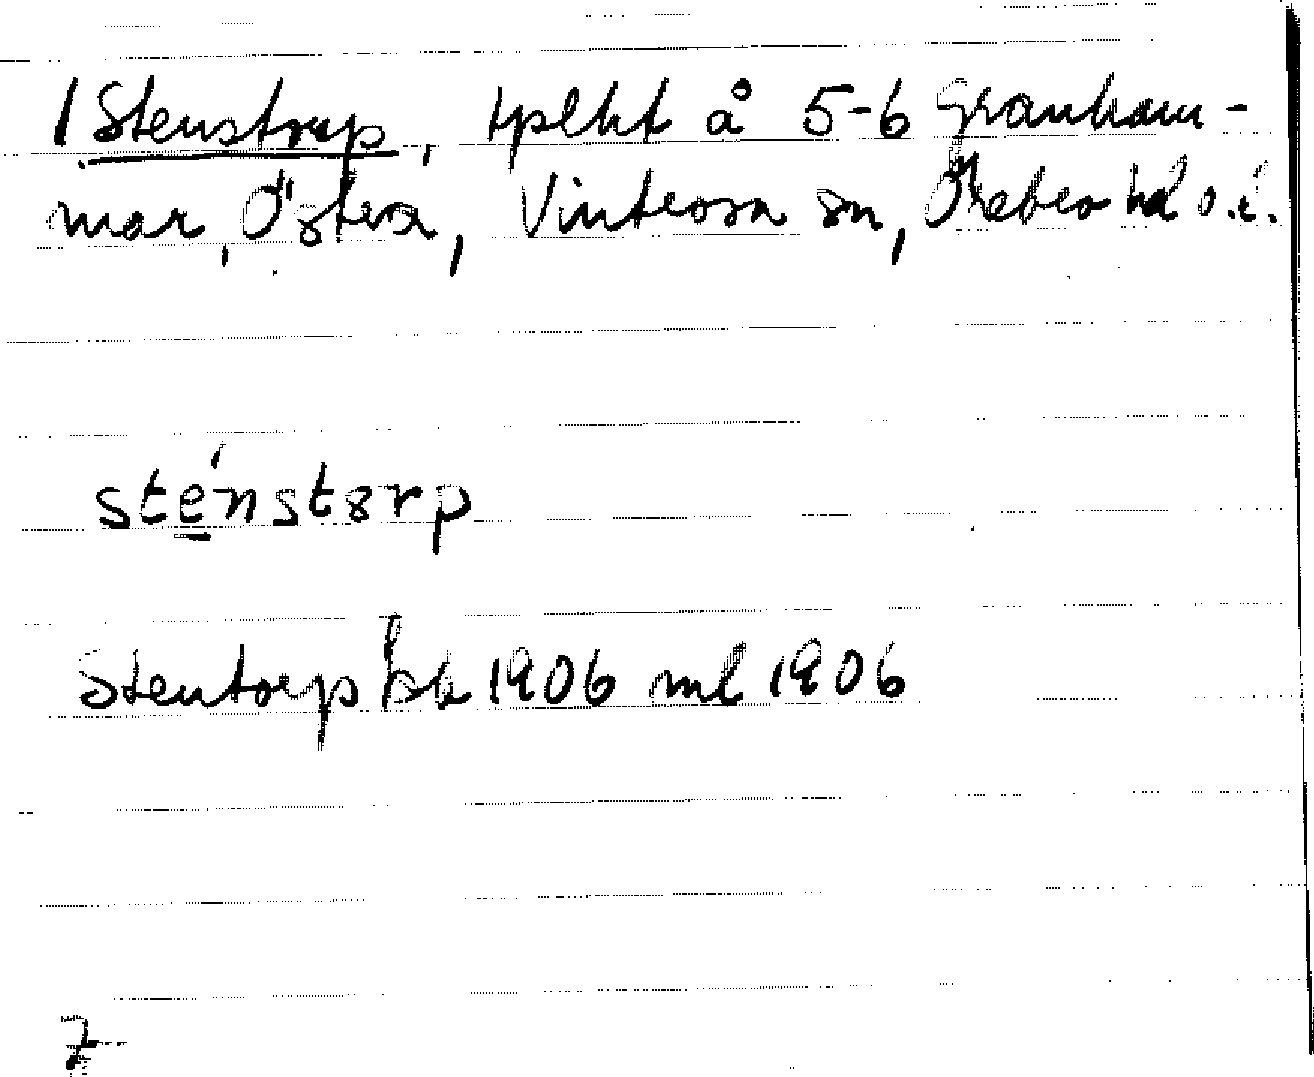 1 Stenstrup, tplht å 5-6 Granham-
mar, Östra, Vintrosa sn, Örebro hd o.l.
sténstørp
Stentorp hk 1906 ml 1906
7